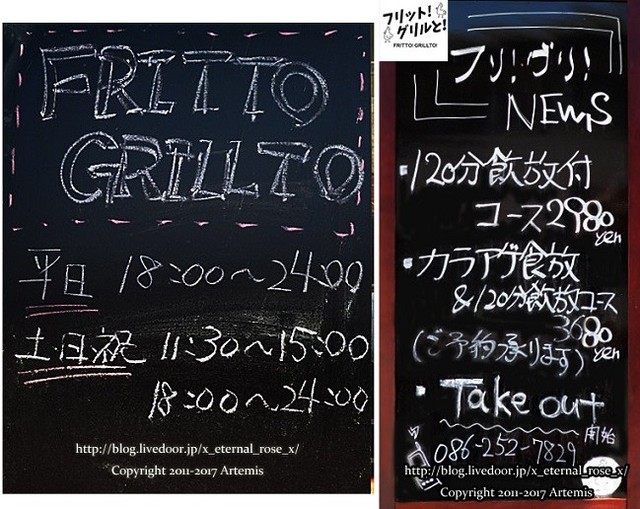 FRITTO
GRILLTO
平日 18:00〜24:00
土日祝 11:30〜15:00
18:00〜24:00
http://blog.livedoor.jp/x_eternal_rose_x/
Copyright 2011-2017 Artemis
フリット!
グリルと!
FRITTO! GRILLTO!
フリ!グリ!
NEWS
120分飲放付
コース2980
yen
カラアゲ食放
&120分飲放コース
3680
yen
(ご予約承ります)
Take out
開始
086-252-7829
http://blog.livedoor.jp/x_eternal_rose_x/
Copyright 2011-2017 Artemis